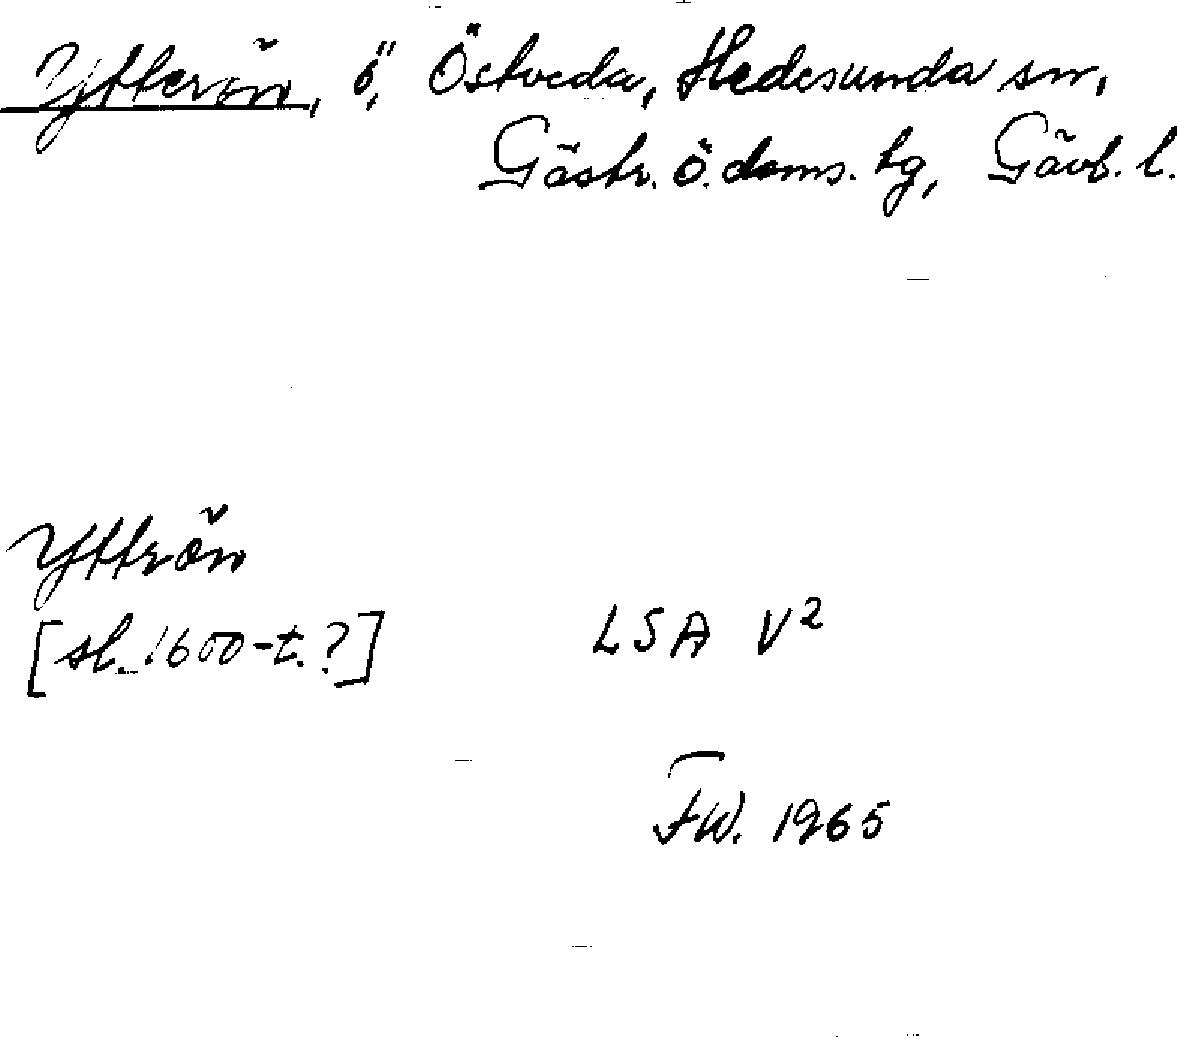 Ytterön, ö, Östveda, Hedesunda sn,
Gästr. ö. doms. tg, Gävl. l.
Yttrön
[sl. 1600-t.?]
LSA V²
FW. 1965